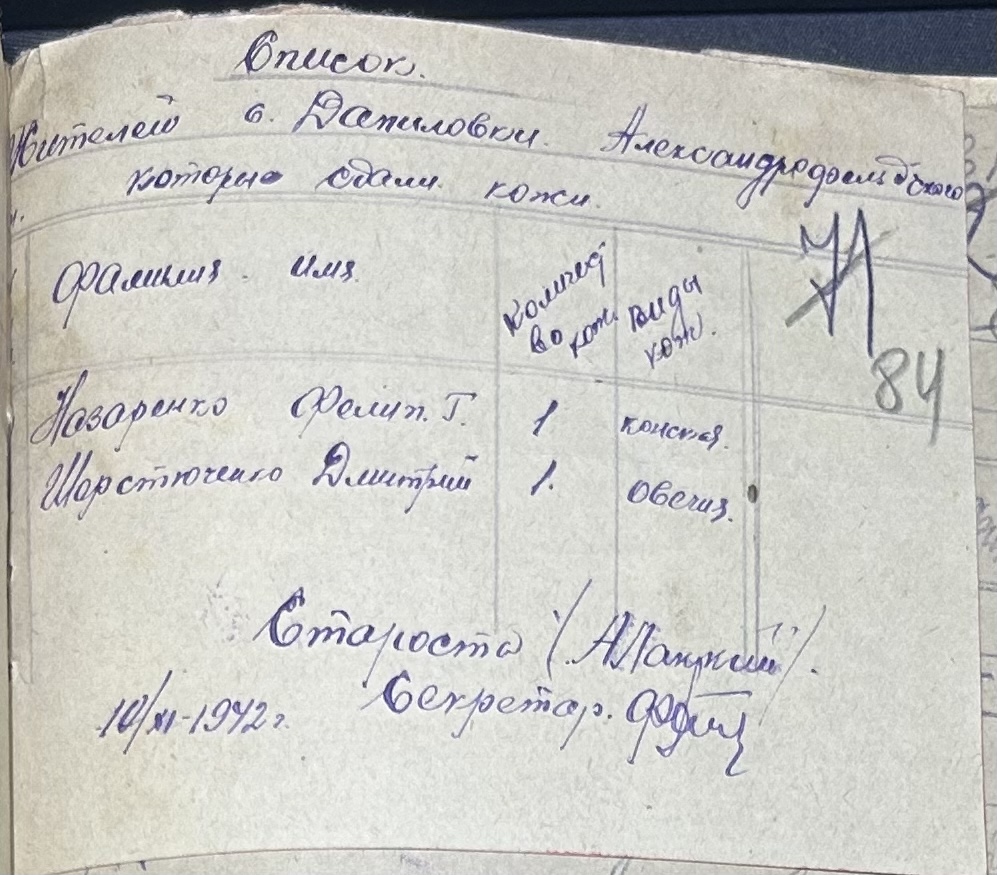 Список.
Жителей с. Даниловки. Александродольдского
которые сдали кожи.
Фамилия. имя. Количес во кож. виды кож.
84
Назаренко Фелип. Г. 1 конская.
Шерстюченко Дмитрий 1. Овечия.
Староста /. /.
Секретар.
10/XI-1942 г.